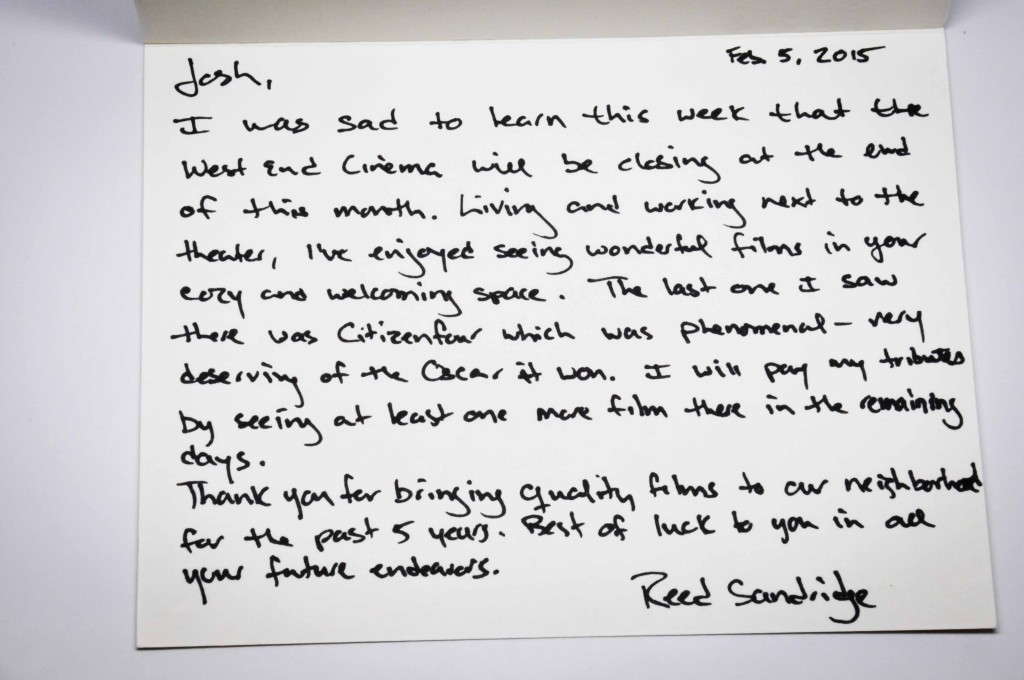 Feb. 5, 2015
Josh,
I was sad to learn this week that the
West End Cinema will be closing at the end
of this month. Living and working next to the
theater, I've enjoyed seeing wonderful films in your
cozy and welcoming space. The last one I saw
there was Citizenfour which was phenomenal – very
deserving of the Oscar it won. I will pay my tributes
by seeing at least one more film there in the remaining
days.
Thank you for bringing quality films to our neighborhood
for the past 5 years. Best of luck to you in all
your future endeavors.
Reed Sandridge